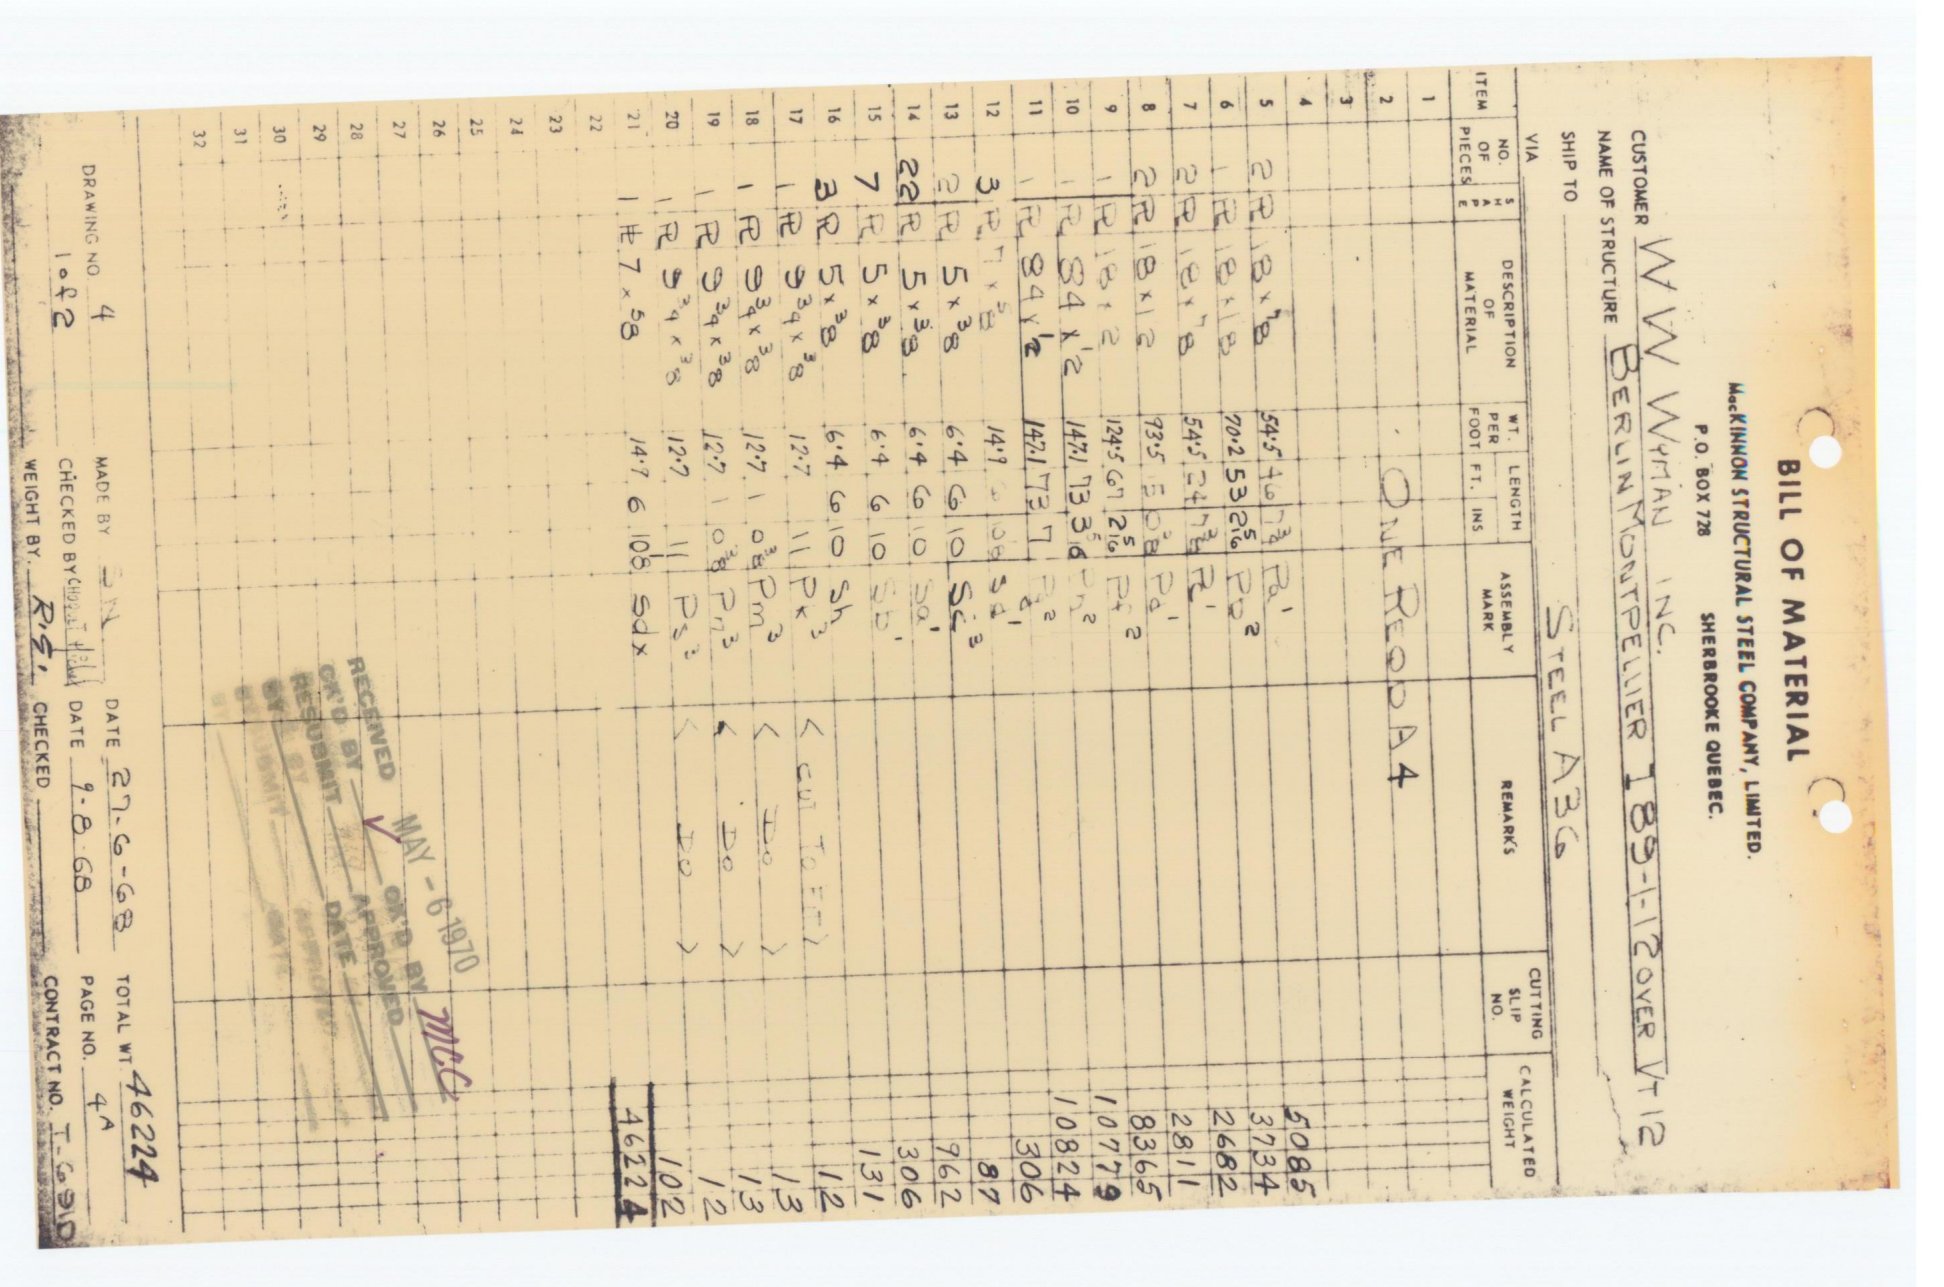 BILL OF MATERIAL
MacKINNON STRUCTURAL STEEL COMPANY, LIMITED.
P.O. BOX 728 SHERBROOKE QUEBEC.
CUSTOMER W W WYMAN INC.
NAME OF STRUCTURE BERLIN MONTPELLIER I 89-1-12 OVER VT 12
SHIP TO STEEL A36
VIA
ITEM NO. OF PIECES SHAPE DESCRIPTION OF MATERIAL WT. PER FOOT LENGTH FT. INS ASSEMBLY MARK REMARKS CUTTING SLIP NO. CALCULATED WEIGHT
1
2 ONE REQD A4
3
4 5085
5 2 PL 18 x 7/8 54.5 46 7 3/4 Pa1 3734
6 1 PL 18 x 1 1/8 70.2 53 2 5/16 Pb2 2682
7 2 PL 18 x 7/8 54.5 24 7 3/4 2811
8 2 PL 18 x 1 1/2 93.5 Pd1 8365
9 1 PL 18 x 2 124.5 67 2 5/16 Pf2 10779
10 1 PL 84 x 1/2 147.1 73 3 5/16 10824
11 1 PL 84 x 1/2 147.1 73 7 306
12 3 PL 7 x 5/8 14.9 10 1/8 Sd1 87
13 2 PL 5 x 3/8 6.4 6 10 Sc3 962
14 22 PL 5 x 3/8 6.4 6 10 Sa1 306
15 7 PL 5 x 3/8 6.4 6 10 Sb1 131
16 3 PL 5 x 3/8 6.4 6 10 Sh 12
17 1 PL 9 3/4 x 3/8 12.7 11 Pk3 < CUT TO > 13
18 1 PL 9 3/4 x 3/8 12.7 1 0 3/8 Pm3 < DO > 13
19 1 PL 9 3/4 x 3/8 12.7 1 0 3/8 Pn3 < DO > 12
20 1 PL 9 3/4 x 3/8 12.7 11 Ps3 < DO > 102
21 1 PL 7 x 5/8 14.9 6 10 1/8 Sdx 46224
22
23
24
25
26
27
28
29
30
31
32
MAY - 6 1970
RECEIVED
OK'D BY OK'D BY MCC
RESUBMIT APPROVED
BY DATE
DRAWING NO. 4 MADE BY DATE 27-6-68 TOTAL WT. 46224
1 of 2 CHECKED BY DATE 9-8-68 PAGE NO. 4A
WEIGHT BY. R.G. CHECKED CONTRACT NO. T-691D